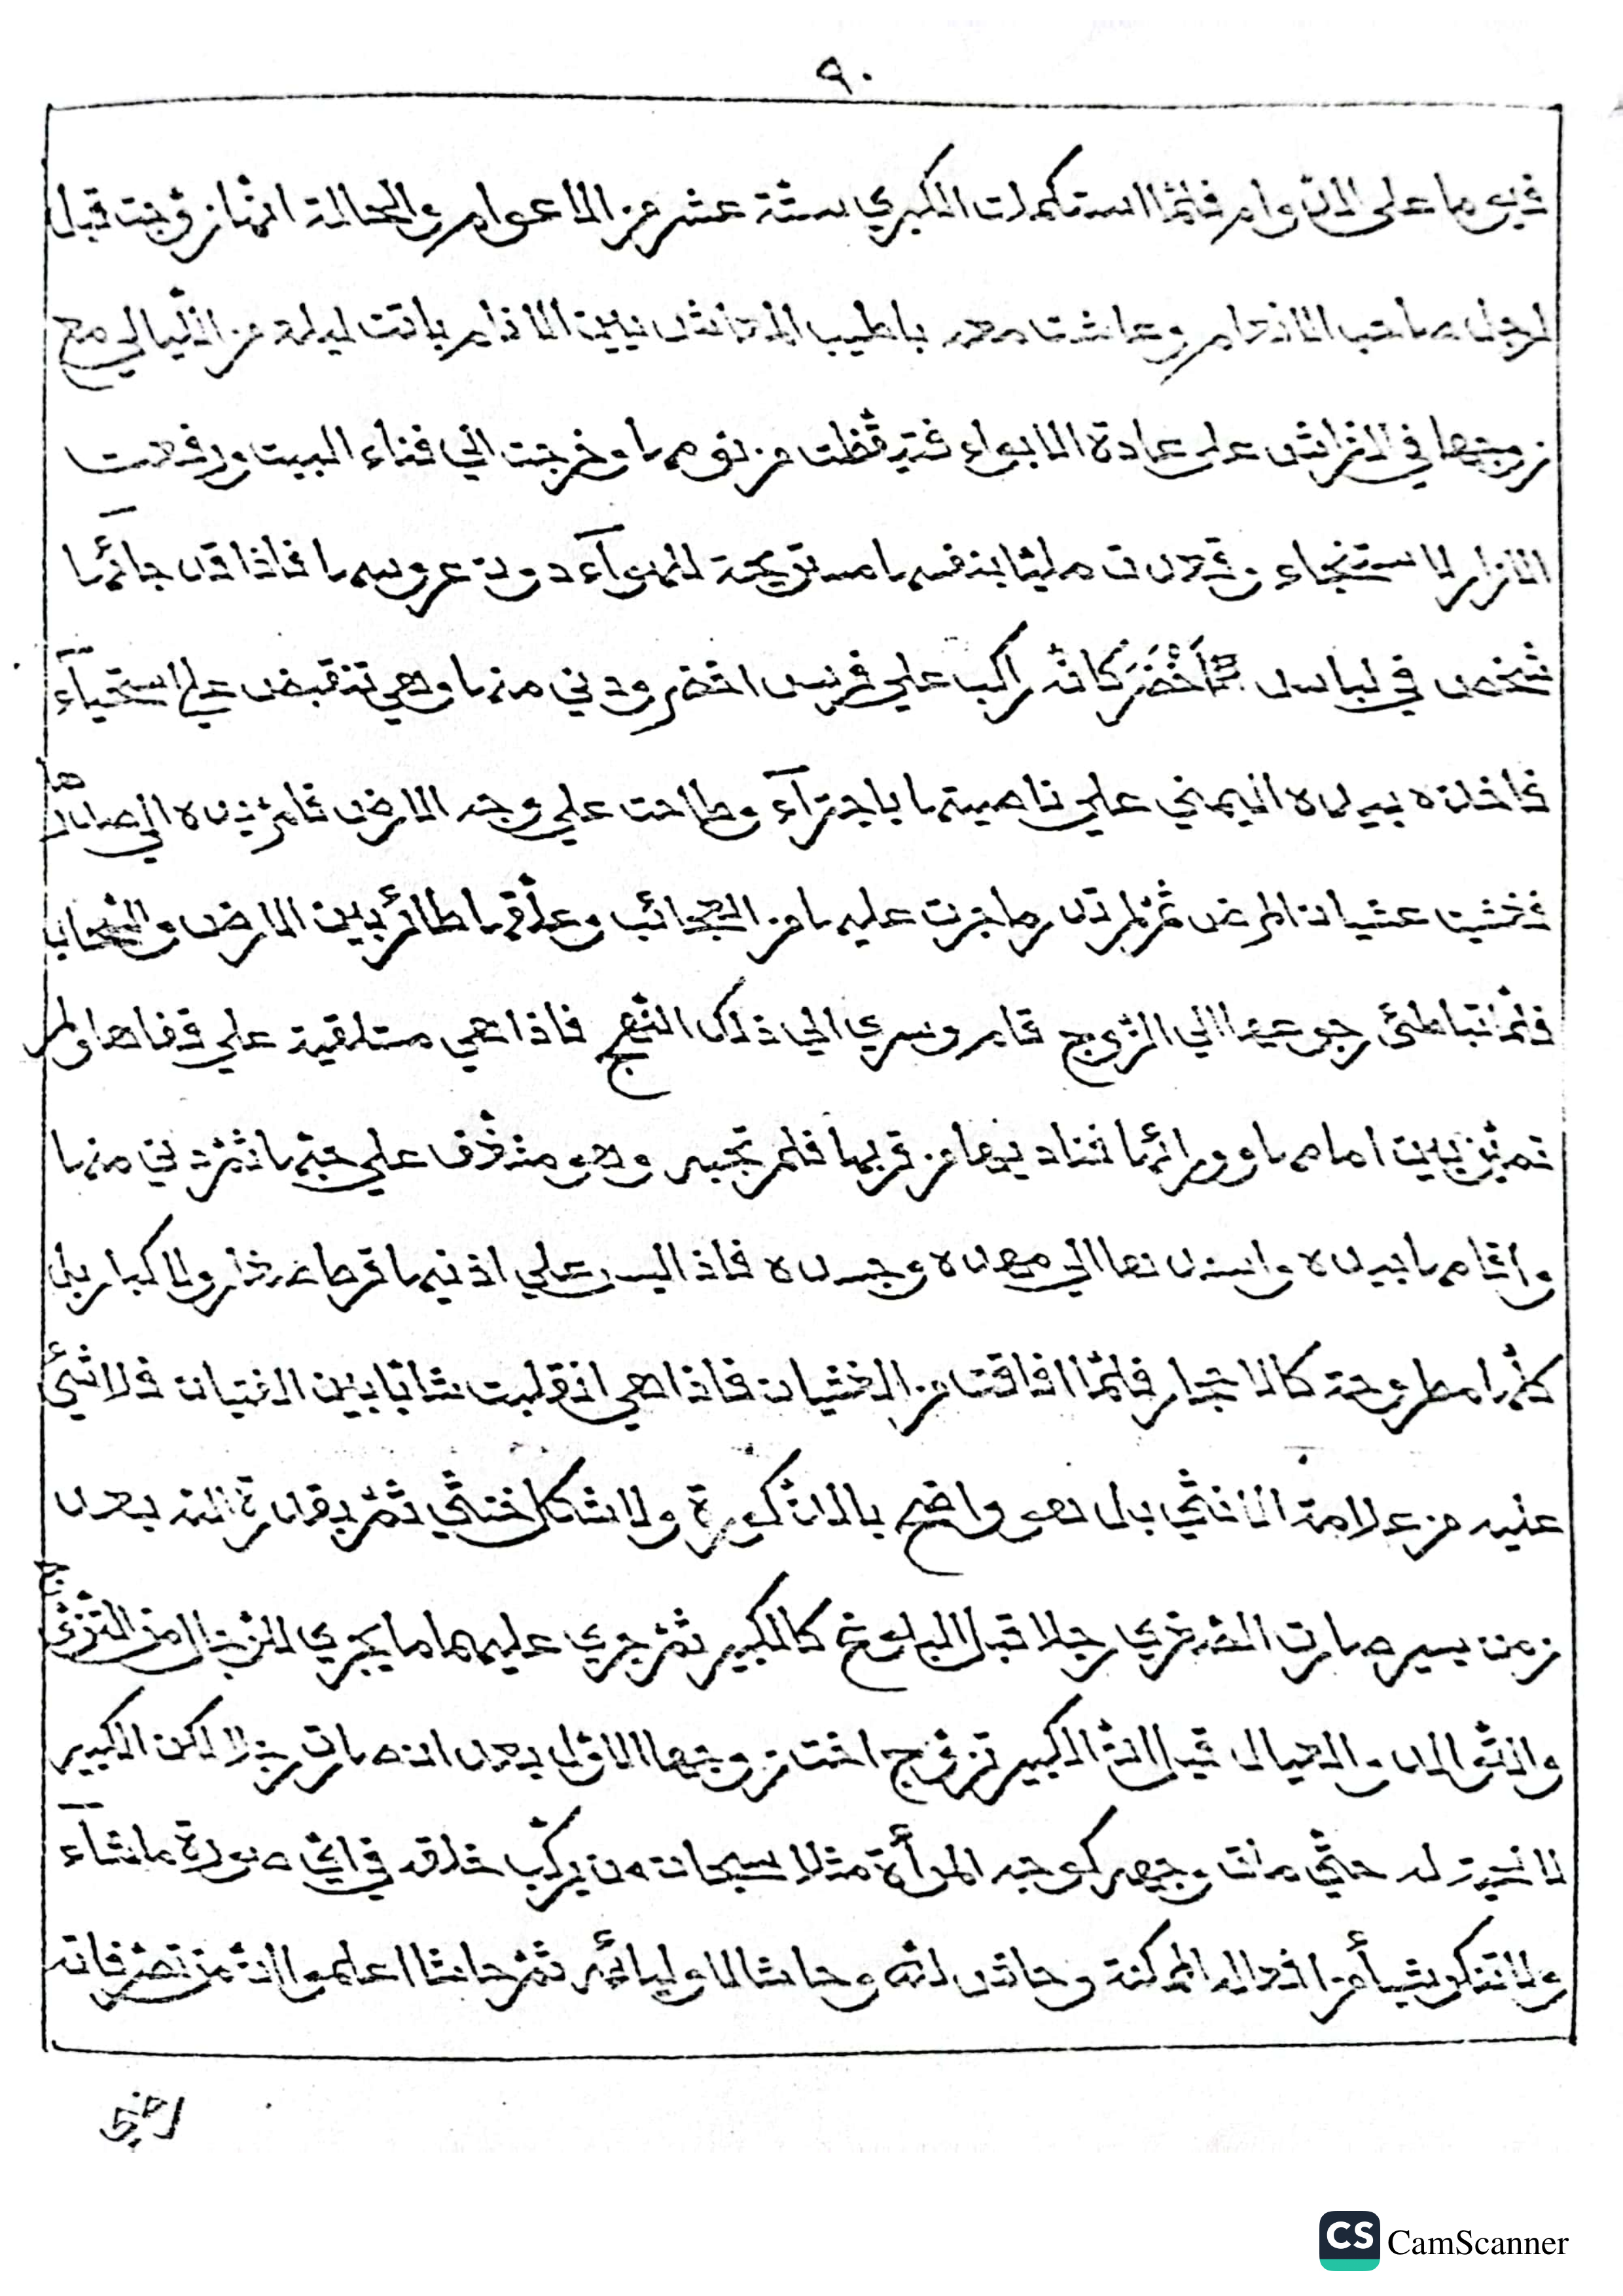 ٩٠
فيوما على الدوام فلمّا استكملت الكبري ستّة عشر من الاعوام والحالة انّها زوّجت قبل
لرجل صاحب الانعام وعاشت معه باطيب المعائش بين الانام باتت ليلة من اللّيالي مع
زوجها في الفراش على عادة الابواء فتيقّظت من نومها وخرجت الي فناء البيت ورفعت
الازار لاستنجاء وقعدت مليّا بنفسها مستريحة للهوآء دون عروسها فاذا قد جائها
شخص في لباس اَخْضَرَ كانّه راكب علي فرس اخضر ودني منها وهي تنقبض علي استحيآء
فاخذته بيده اليمني علي ناصيتها باجترآء وطاحت علي وجه الارض فامرّ يده الي
فخشيت عشيان المرض ثمّ لم تدر ما جرت عليها من العجائب وعلّقها طائر بين الارض والسّحاب
فلمّا تباطئ رجوعها الي الزّوج قام وسري الي ذلك النّهج فاذا هي مستلقية علي قفاها ولم
تميّز بين امامها وورائها فناديها من قربها فلم تجبه وهو متلهّف علي حبّها ثمّ دني منها
واقامها بيده واسندها الي معده وجسده فاذا ليس علي اذنيها قرط صغار ولا كبار بل
كلّها مطروحة كالاحجار فلمّا افاقت من الغشيان فاذا هي انقلبت شابّا بين الفتيان فلا شيئ
عليه من علامة الانثي بل هو واضح بالذّكورة ولا شكل خنثي ثمّ بقدرة الله بعد
زمن يسير صارت الصّغري رجلا قبل البلوغ كالكبير ثمّ جري عليهما ما يجري للرّجال من التّزوّج
والتّوالد والعيال قيل انّ الكبير تزوّج اخت زوجها الاوّل بعد ان صارت رجلا لكن الكبير
لا لحية له حتّي مات وجهه كوجه المرأة مثلا سبحان من يركّب خلقه في ايّ صورة ما شآء
ولا تنكر شيأ من افعاله الممكنة وحاش لله وحاشا لاوليائه ثمّ حاشا اعلموا انّ من تصرّفاته
رضي
CS CamScanner